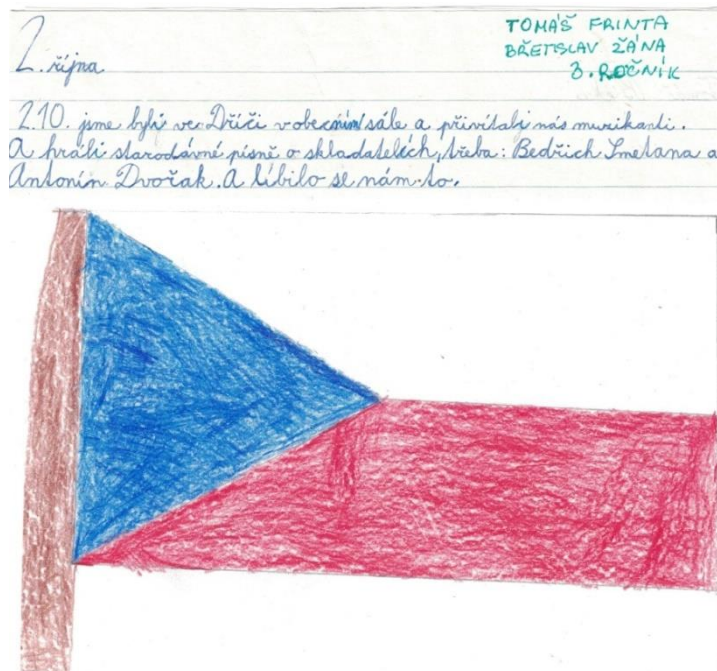 TOMÁŠ FRINTA
BŘETISLAV ŽÁNA
3. ROČNÍK
2. října
2.10. jsme byli ve Dříči v obecním sále a přivítali nás muzikanti.
A hráli starodávné písně o skladatelích, třeba: Bedřich Smetana a
Antonín Dvořak. A líbilo se nám to.